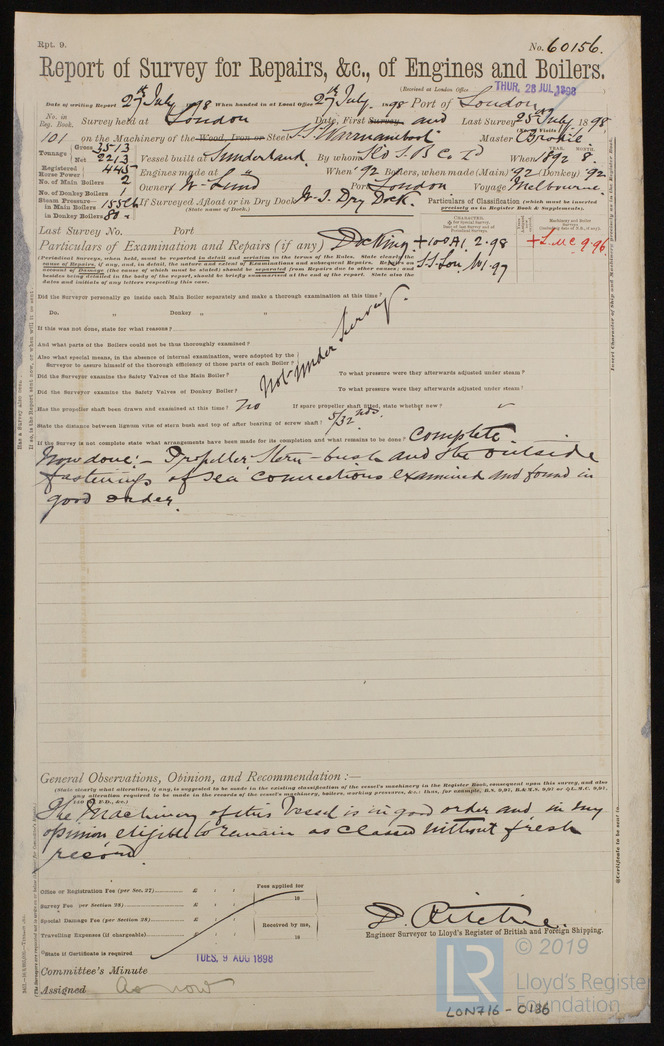 Rpt. 9.
No. 60156.
Report of Survey for Repairs, &c., of Engines and Boilers.
(Received at London Office THUR. 28 JUL 1898)
Date of writing Report 27th July 98 When handed in at Local Office 27th July 1898 Port of London
No. in Reg. Book. Survey held at London Date, First Survey and Last Survey 25th July 1898
(No. of Visits)
101 on the Machinery of the Wood, Iron or Steel S.S. Warrnambool Master Brokie
Tonnage Gross 3513 Net 2213 Vessel built at Sunderland By whom When 1892 8 YEAR. MONTH.
Registered Horse Power 445 Engines made at " When '92 Boilers, when made (Main) '92 (Donkey) '92
No. of Main Boilers 2 Owners W. Lund Port London Voyage Melbourne
No. of Donkey Boilers 1
Steam Pressure— in Main Boilers 155 lb If Surveyed Afloat or in Dry Dock W. I. Dry Dock.
(State name of Dock.)
in Donkey Boilers 80 "
Particulars of Classification (which must be inserted precisely as in Register Book & Supplements).
Last Survey No. Port
Particulars of Examination and Repairs (if any) Docking
+100A1. 2.98
S.S. Lon. No 1. 97
+L.M.C. 9.96
(Periodical Surveys, when held, must be reported in detail and seriatim in the terms of the Rules. State clearly the
cause of Repairs, if any, and, in detail, the nature and extent of Examinations and subsequent Repairs. Repairs on
account of Damage (the cause of which must be stated) should be separated from Repairs due to other causes; and
besides being detailed in the body of the report, should be briefly summarized at the end of the report. State also the
dates and initials of any letters respecting this case.
Did the Surveyor personally go inside each Main Boiler separately and make a thorough examination at this time?
Do. " Donkey " "
If this was not done, state for what reasons?
And what parts of the Boilers could not be thus thoroughly examined?
Also what special means, in the absence of internal examination, were adopted by the
Surveyor to assure himself of the thorough efficiency of those parts of each Boiler?
Not under survey.
Did the Surveyor examine the Safety Valves of the Main Boiler? To what pressure were they afterwards adjusted under steam?
Did the Surveyor examine the Safety Valves of Donkey Boiler? To what pressure were they afterwards adjusted under steam?
Has the propeller shaft been drawn and examined at this time? No If spare propeller shaft fitted, state whether new?
State the distance between lignum vitæ of stern bush and top of after bearing of screw shaft? 5/32 nds.
If the Survey is not complete state what arrangements have been made for its completion and what remains to be done? Complete
Now done:— Propeller Stern-bush and the outside
fastenings of sea connections examined and found in
good order.
General Observations, Opinion, and Recommendation:—
(State clearly what alteration, if any, is suggested to be made in the existing classification of the vessel's machinery in the Register Book, consequent upon this survey, and also
any alteration required to be made in the records of the vessel's machinery, boilers, working pressures, &c.; thus, for example, B.S. 9,91, B.&M.S. 9,91 or L.M.C. 9,91,
140 lb. F.D., &c.)
The Machinery of this Vessel is in good order and in my
opinion eligible to remain as classed without fresh
record.
Office or Registration Fee (per Sec. 27) £ : : Fees applied for
Survey Fee (per Section 28) £ : : 18
Special Damage Fee (per Section 28) £ : : Received by me,
Travelling Expenses (if chargeable) £ : : 18
D. Ritchie.
Engineer Surveyor to Lloyd's Register of British and Foreign Shipping.
*State if Certificate is required
TUES. 9 AUG 1898
Committee's Minute
Assigned As now
© 2019
LR
Lloyd's Register
Foundation
LON716-0186